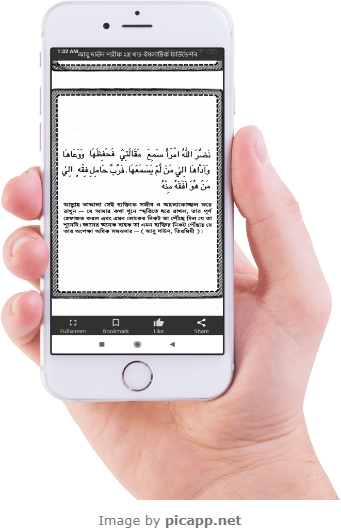 1:32 AM
আবু দাউদ শরীফ ২য় খন্ড-ইসলামিক ফাউন্ডেশন
نَضَّرَ اللّٰهُ امْرَأً سَمِعَ مَقَالَتِيْ فَحَفِظَهَا وَوَعَاهَا
وَاَدَّاهَا اِلٰي مَنْ لَّمْ يَسْمَعْهَا۔ فَرُبَّ حَامِلِ فِقْهٍ اِلٰي
مَنْ هُوَ اَفْقَهُ مِنْهُ
আল্লাহ তাআলা সেই ব্যক্তিকে সজীব ও আলোকোজ্জ্বল করে
রাখুন — যে আমার কথা শুনে স্মৃতিতে ধরে রাখল, তার পূর্ণ
হেফাজত করল এবং এমন লোকের নিকট তা পৌঁছে দিল যে তা
শুনেনি। জ্ঞানের অনেক বাহক তা এমন ব্যক্তির নিকট পৌঁছায় যে
তার অপেক্ষা অধিক সমঝদার — ( আবু দাউদ, তিরমিযী )।
Fullscreen Bookmark Like Share
Image by picapp.net